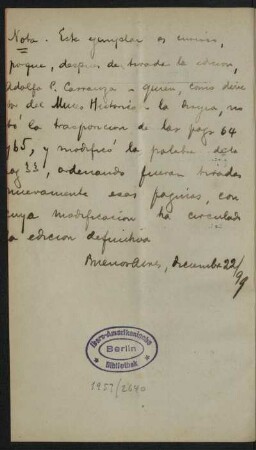 Nota. Este ejemplar es curioso,
porque, despues de tirada la edicion,
Adolfo P. Carranza - quien, como direc
tor del Museo Historico - la dirigia, no
tó la trasposicion de las pags 64
y 65, y modificó la palabra de la
pag, ordenando fueran tiradas
nuevamente esas paginas, con
cuya modificacion ha circulado
la edicion definitiva
Buenos Aires, Diciembre 22/99
Ibero-Amerikanische
Berlin
Bibliothek
1957/2840